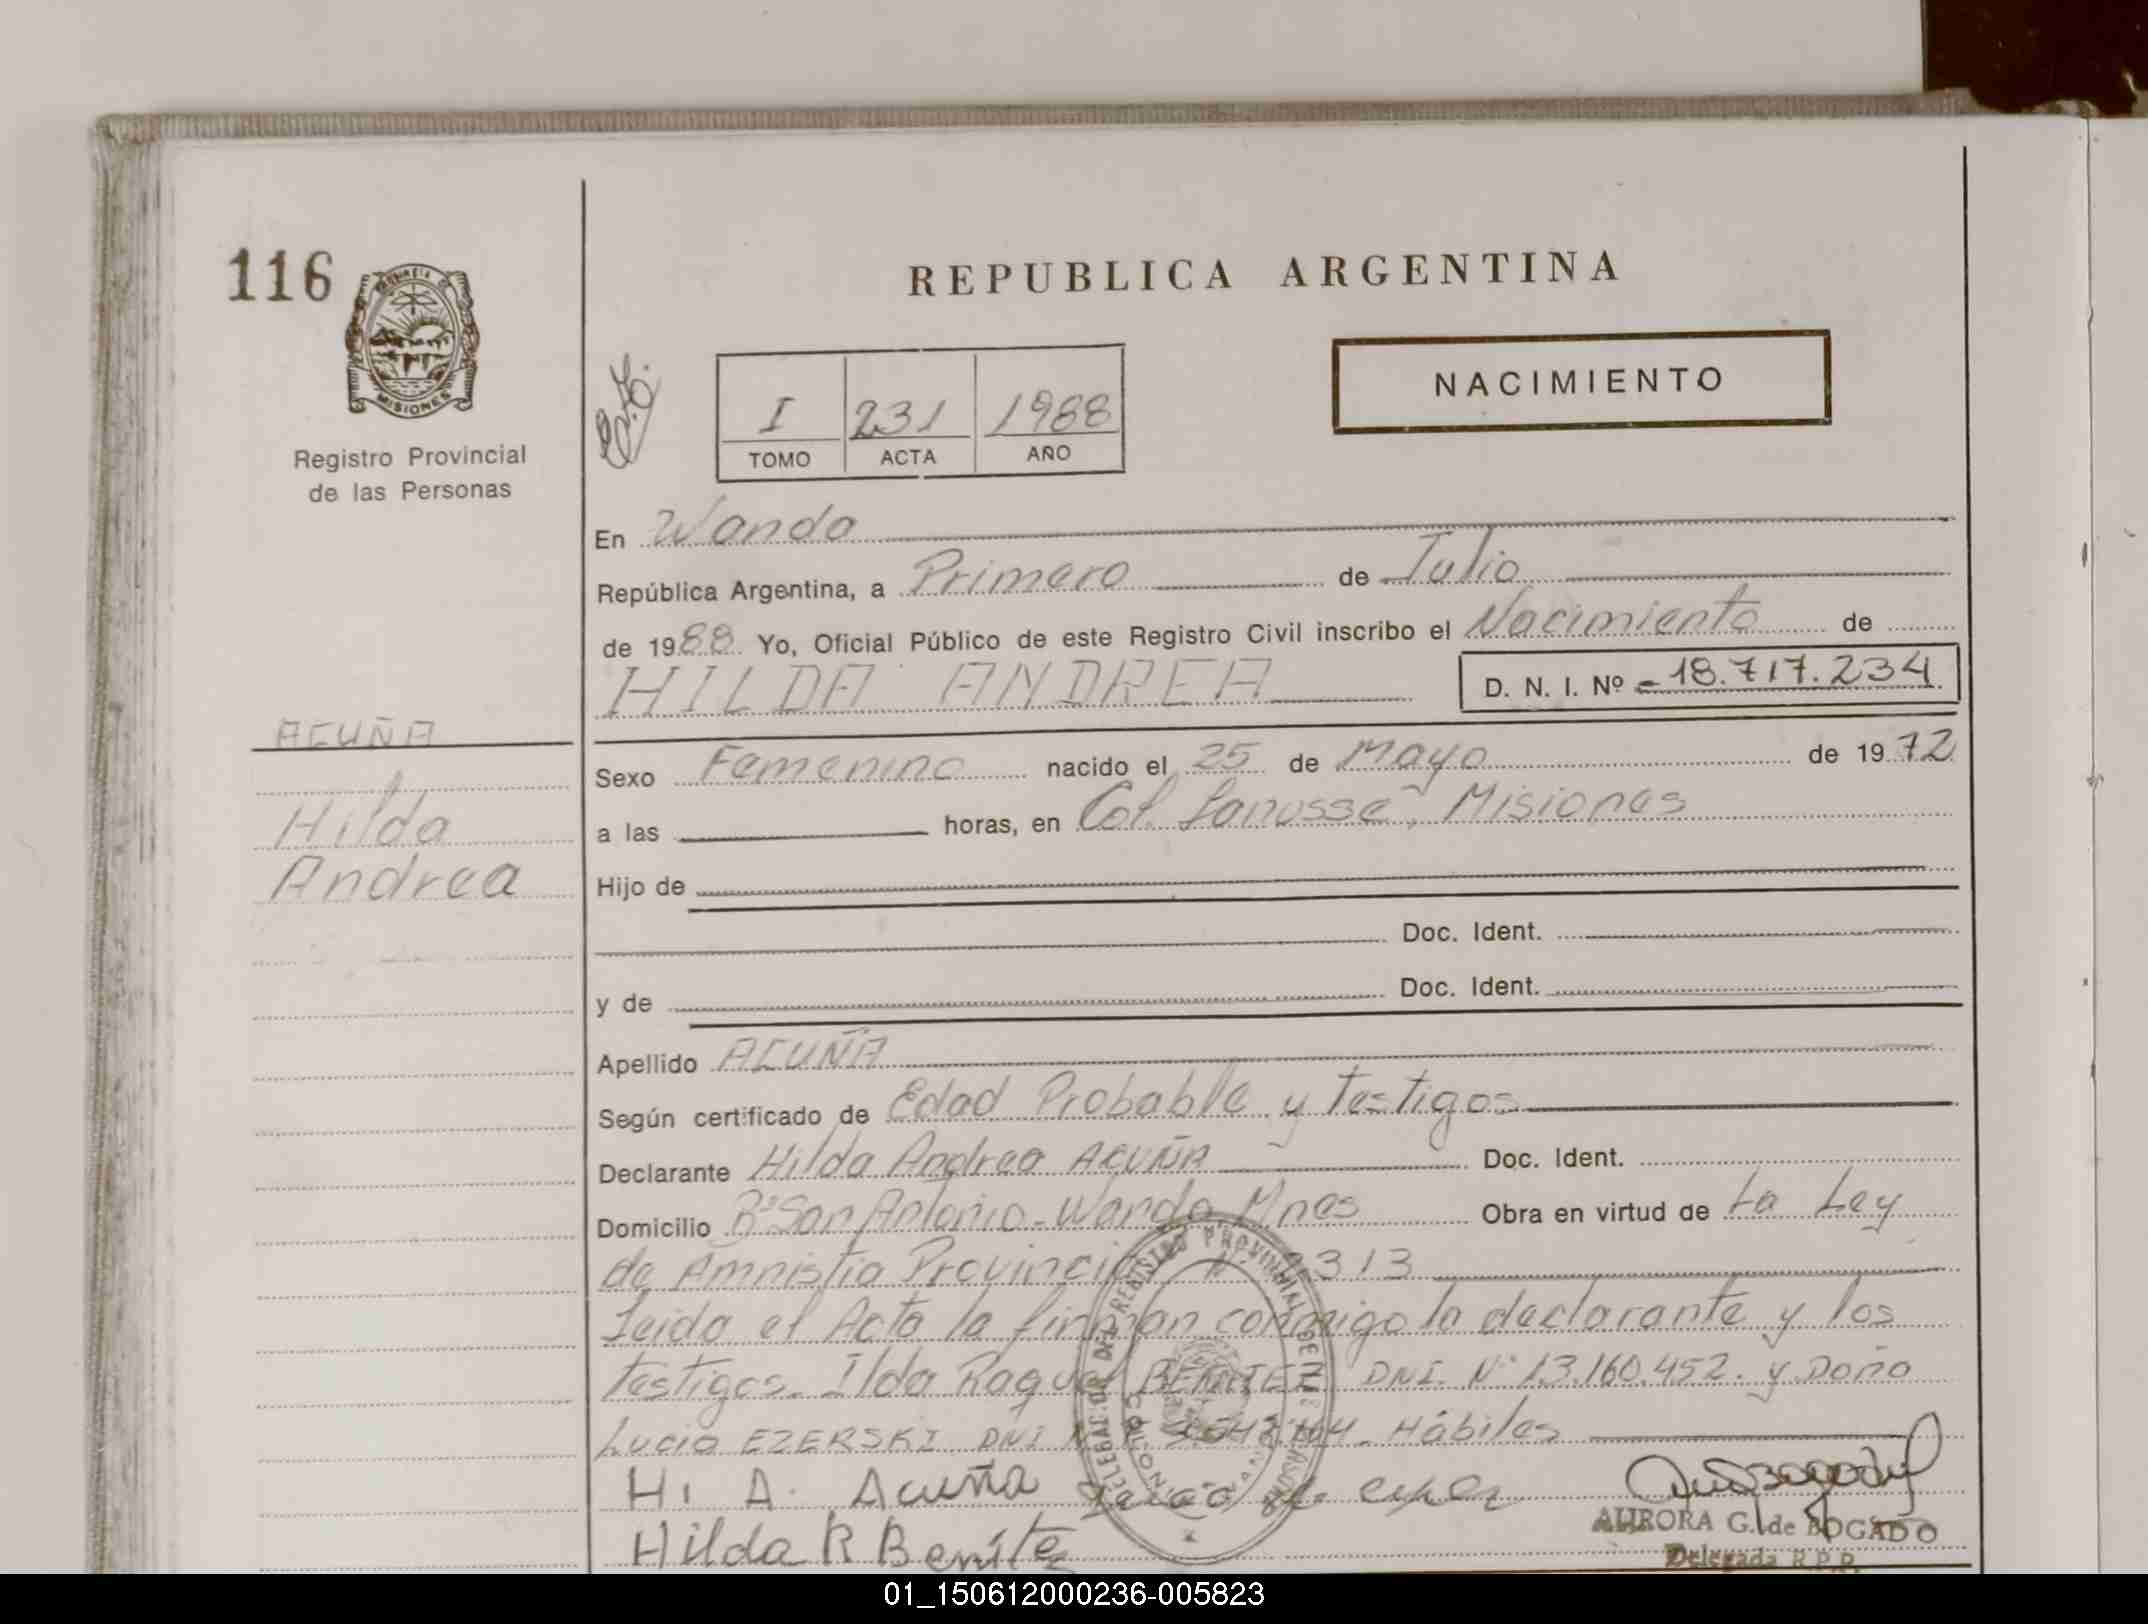 116
PROVINCIA
MISIONES
Registro Provincial
de las Personas
REPUBLICA ARGENTINA
NACIMIENTO
I 231 1988
TOMO ACTA AÑO
En Wanda
República Argentina, a Primero de Julio
de 1988 Yo, Oficial Público de este Registro Civil inscribo el Nacimiento de
HILDA ANDREA D. N. I. Nº 18.717.234
ACUÑA
Hilda
Andrea
Sexo Femenino nacido el 25 de Mayo de 1972
a las horas, en Col. Lanusse, Misiones
Hijo de
Doc. Ident.
y de Doc. Ident.
Apellido ACUÑA
Según certificado de Edad Probable y testigos
Declarante Hilda Andrea ACUÑA Doc. Ident.
Domicilio Bº San Antonio - Wanda Mnes Obra en virtud de La Ley
de Amnistia Provincial 313
Leida el Acta la firman conmigo la declarante y los
testigos. Ilda Raquel BENITEZ DNI. Nº 13.160.452. y Doña
Lucia EZERSKI DNI Hábiles
H. A. Acuña
Hilda R Benítez
AURORA G. de BOGADO
Delegada R.P.P.
01_150612000236-005823